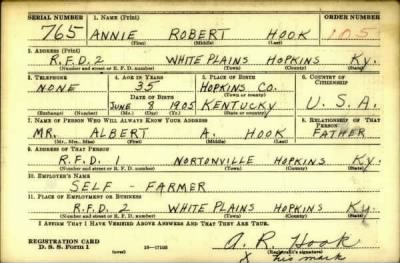 SERIAL NUMBER 1. NAME (Print) ORDER NUMBER
765 ANNIE ROBERT HOOK 105
(First) (Middle) (Last)
2. ADDRESS (Print)
R.F.D. 2 WHITE PLAINS HOPKINS KY.
(Number and street or R. F. D. number) (Town) (County) (State)
3. TELEPHONE 4. AGE IN YEARS 5. PLACE OF BIRTH 6. COUNTRY OF CITIZENSHIP
NONE 35 HOPKINS CO.
DATE OF BIRTH (Town or county)
JUNE 8 1905 KENTUCKY U.S.A.
(Exchange) (Number) (Mo.) (Day) (Yr.) (State or country)
7. NAME OF PERSON WHO WILL ALWAYS KNOW YOUR ADDRESS 8. RELATIONSHIP OF THAT PERSON
MR. ALBERT A. HOOK FATHER
(Mr., Mrs., Miss) (First) (Middle) (Last)
9. ADDRESS OF THAT PERSON
R.F.D. 1 NORTONVILLE HOPKINS KY.
(Number and street or R. F. D. number) (Town) (County) (State)
10. EMPLOYER'S NAME
SELF - FARMER
11. PLACE OF EMPLOYMENT OR BUSINESS
R.F.D. 2 WHITE PLAINS HOPKINS KY.
(Number and street or R. F. D. number) (Town) (County) (State)
I AFFIRM THAT I HAVE VERIFIED ABOVE ANSWERS AND THAT THEY ARE TRUE.
REGISTRATION CARD A. R. Hook
D. S. S. Form 1 (over) 16-17105 (Registrant's signature)
X his mark